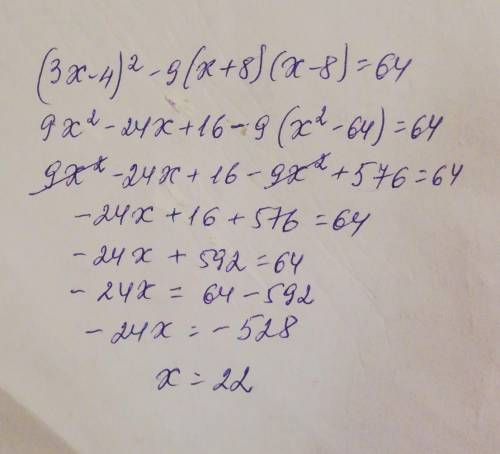 (3x-4)² - 9(x+8)(x-8)=64
9x² - 24x + 16 - 9(x² - 64) = 64
9x² - 24x + 16 - 9x² + 576 = 64
- 24x + 16 + 576 = 64
- 24x + 592 = 64
- 24x = 64 - 592
- 24x = - 528
x = 22